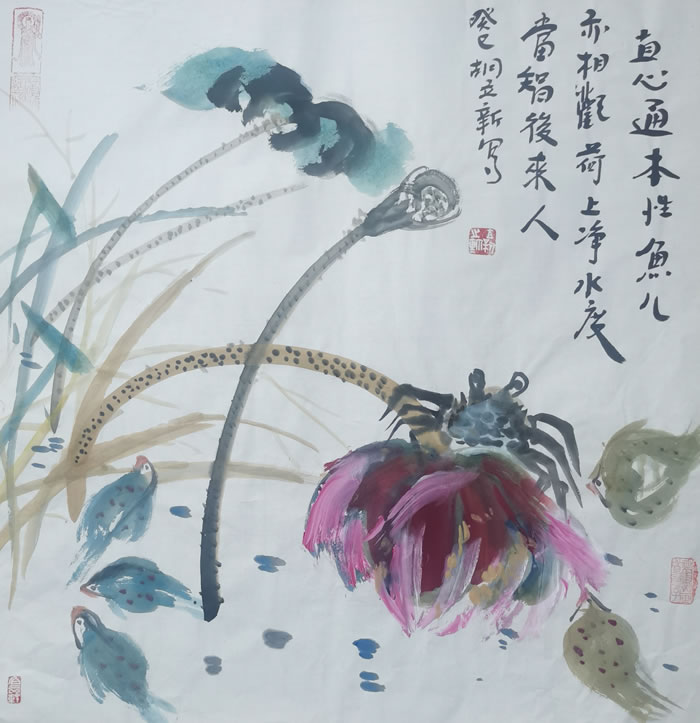 直心通本性魚儿
亦相觀荷上净水度
當智後來人
癸巳胡立新寫